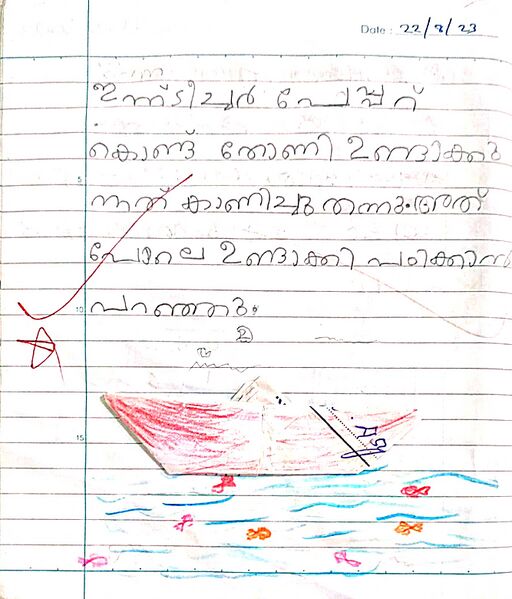 Date : 22/8/23
ഇന്ന് ടീച്ചർ പേപ്പറ്
കൊണ്ട് തോണി ഉണ്ടാക്കു
ന്നത് കാണിച്ചു തന്നു. അത്
പോലെ ഉണ്ടാക്കി പഠിക്കാൻ
പറഞ്ഞു.